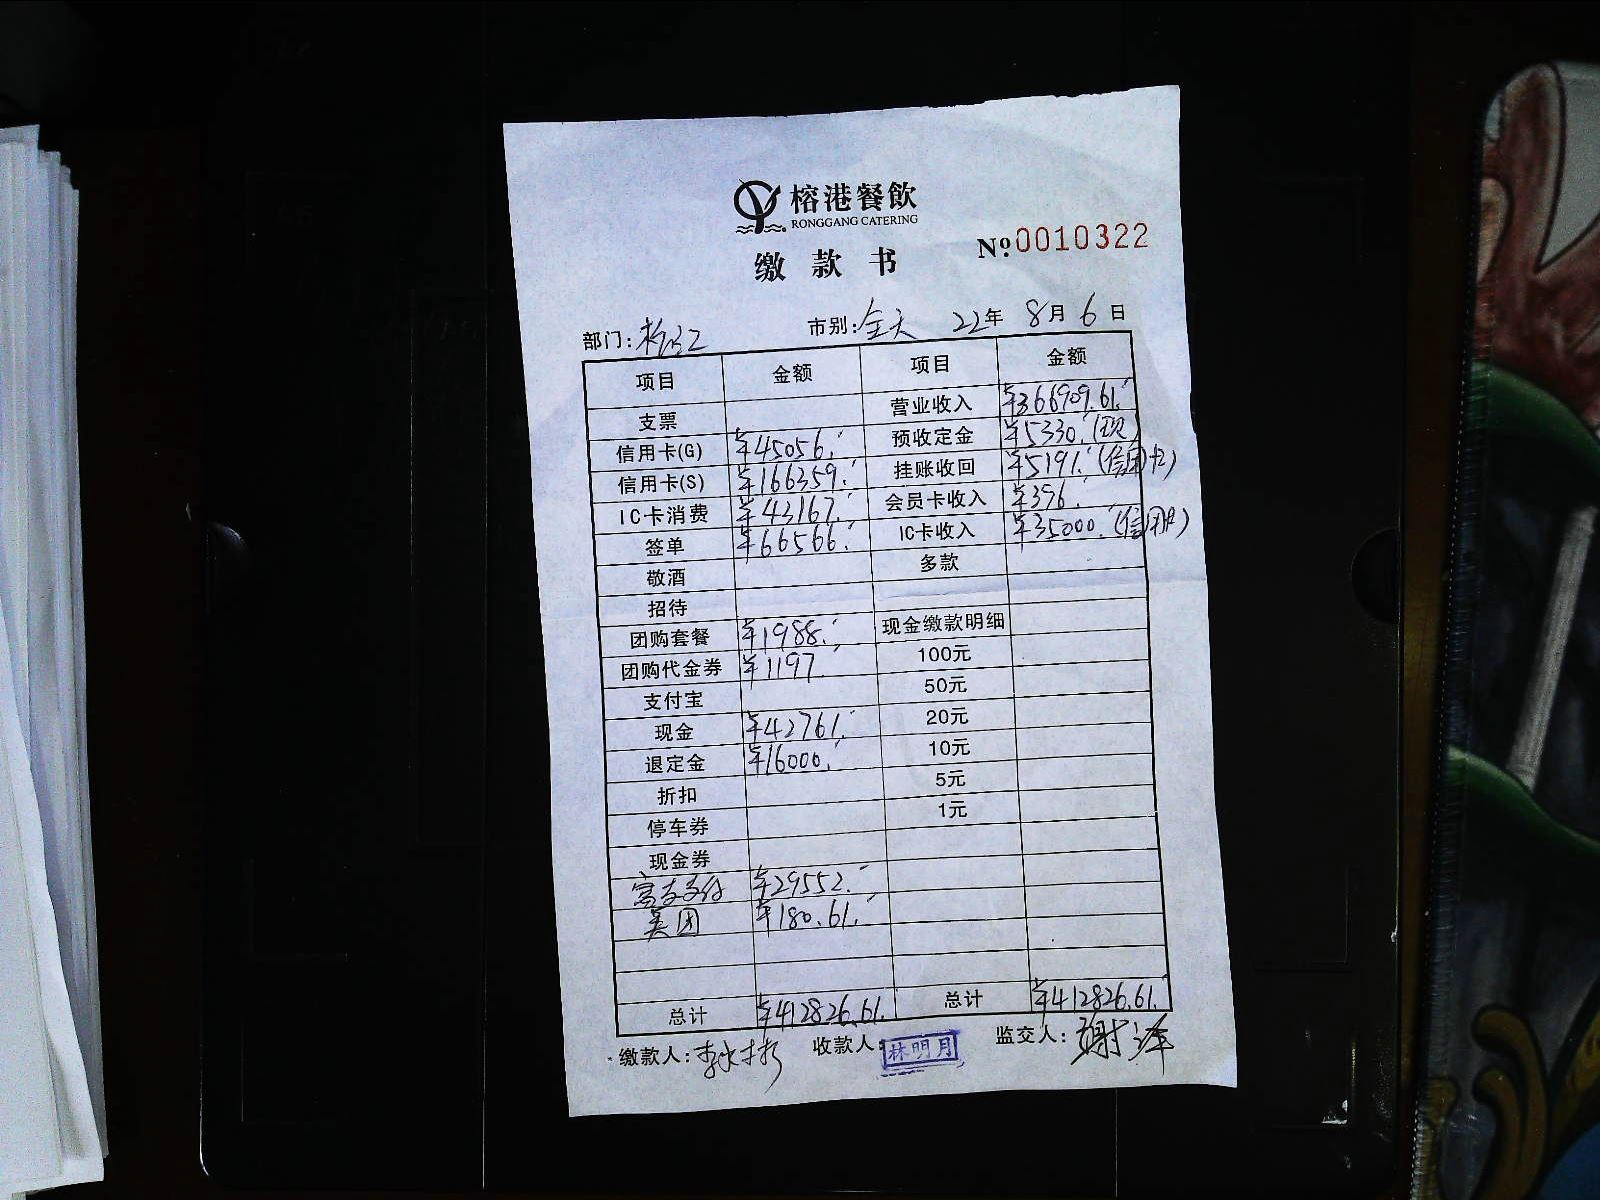 榕港餐飲
RONGGANG CATERING
缴款书
№:0010322
部门: 市别:全天 22年8月6日
项目 金额 项目 金额
支票 营业收入 ¥366909.61.
信用卡(G) ¥45056. 预收定金 ¥5330.(现)
信用卡(S) ¥166359. 挂账收回 ¥5191.(信用卡)
IC卡消费 ¥43167. 会员卡收入 ¥396.
签单 ¥66566. IC卡收入 ¥35000.(信用卡)
敬酒 多款
招待
团购套餐 ¥1988. 现金缴款明细
团购代金券 ¥1197. 100元
支付宝 50元
现金 ¥42761. 20元
退定金 ¥16000. 10元
折扣 5元
停车券 1元
现金券
支付 ¥29552.
美团 ¥180.61.
总计 ¥412826.61. 总计 ¥412826.61.
缴款人: 收款人: 林明月 监交人:谢